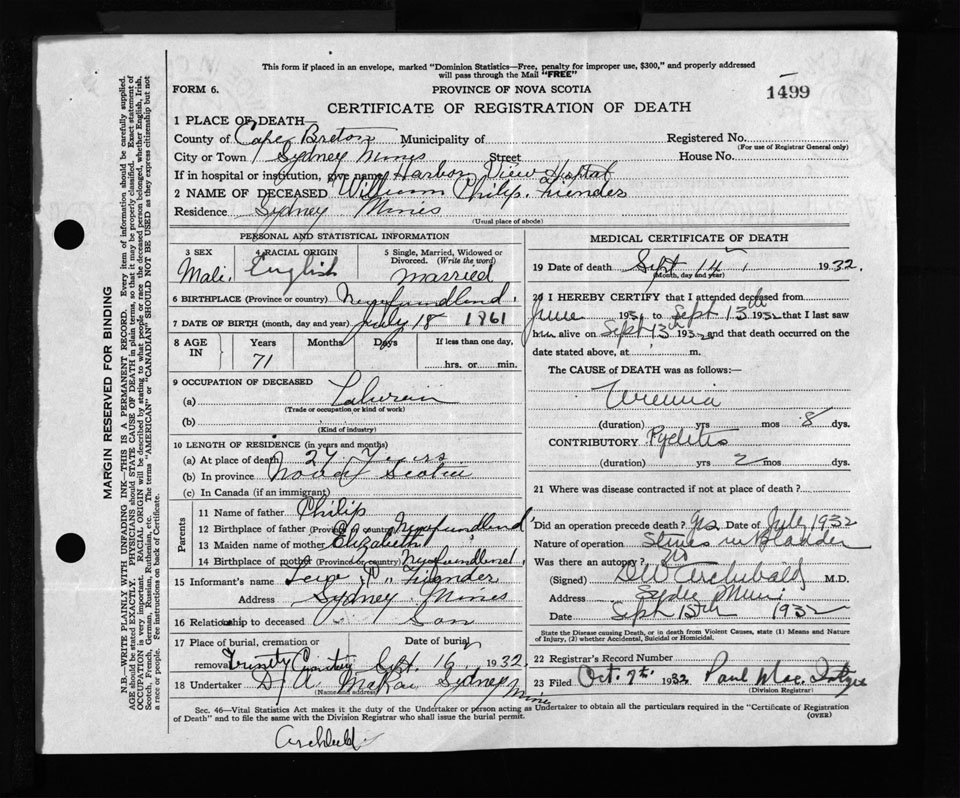 This form if placed in an envelope, marked "Dominion Statistics—Free, penalty for improper use, $300," and properly addressed
will pass through the Mail "FREE"
FORM 6.
PROVINCE OF NOVA SCOTIA
1499
CERTIFICATE OF REGISTRATION OF DEATH
1 PLACE OF DEATH—
County of Cape Breton Municipality of
Registered No.
(For use of Registrar General only)
City or Town Sydney Mines Street House No.
If in hospital or institution, give name Harbor View Hospital
2 NAME OF DECEASED William Philip
Residence Sydney Mines
(Usual place of abode)
PERSONAL AND STATISTICAL INFORMATION
3 SEX
Male
4 RACIAL ORIGIN
English
5 Single, Married, Widowed or
Divorced. (Write the word)
married
6 BIRTHPLACE (Province or country) Newfoundland
7 DATE OF BIRTH (month, day and year) July 18 1861
8 AGE IN
Years Months Days If less than one day,
71 hrs. or min.
9 OCCUPATION OF DECEASED
(a)
(Trade or occupation or kind of work)
(b)
(Kind of industry)
10 LENGTH OF RESIDENCE (in years and months)
(a) At place of death 27 Years
(b) In province Nova Scotia
(c) In Canada (if an immigrant)
Parents
11 Name of father Philip
12 Birthplace of father (Province or country) Newfoundland
13 Maiden name of mother Elizabeth
14 Birthplace of mother (Province or country) Newfoundland
15 Informant's name
Address Sydney Mines
16 Relationship to deceased Son
17 Place of burial, cremation or
removal Trinity Cemetery
Date of burial
Sept. 16, 1932.
18 Undertaker D. A. McRae Sydney Mines
(Name and address)
MEDICAL CERTIFICATE OF DEATH
19 Date of death Sept 14, 1932.
(Month, day and year)
20 I HEREBY CERTIFY that I attended deceased from
June 193 to Sept 13th 1932 that I last saw
him alive on Sept 13th 1932 and that death occurred on the
date stated above, at m.
The CAUSE of DEATH was as follows:—
Uremia
(duration) yrs mos 8 dys.
CONTRIBUTORY Pyelitis
(duration) yrs 2 mos dys.
21 Where was disease contracted if not at place of death?
Did an operation precede death? yes Date of July 1932
Nature of operation Stones in Bladder
Was there an autopsy?
(Signed) D W Archibald M.D.
Address Sydney Mines
Date Sept 15th 1932
State the Disease causing Death, or in death from Violent Causes, state (1) Means and Nature
of Injury, (2) whether Accidental, Suicidal or Homicidal.
22 Registrar's Record Number
23 Filed Oct. 7th 1932 Paul Mac
(Division Registrar)
Sec. 46—Vital Statistics Act makes it the duty of the Undertaker or person acting as Undertaker to obtain all the particulars required in the "Certificate of Registration
of Death" and to file the same with the Division Registrar who shall issue the burial permit.
(OVER)
MARGIN RESERVED FOR BINDING
N.B.—WRITE PLAINLY WITH UNFADING INK—THIS IS A PERMANENT RECORD. Every item of information should be carefully supplied.
AGE should be stated EXACTLY. PHYSICIANS should STATE CAUSE OF DEATH in plain terms, so that it may be properly classified. Exact statement of
OCCUPATION is very important. RACIAL ORIGIN will be described by stating to what people or race the deceased person belonged, whether English, Irish,
Scotch, French, German, Russian, Ruthenian, etc. The terms "AMERICAN" or "CANADIAN" SHOULD NOT BE USED as they express citizenship but not
a race or people. See instructions on back of Certificate.